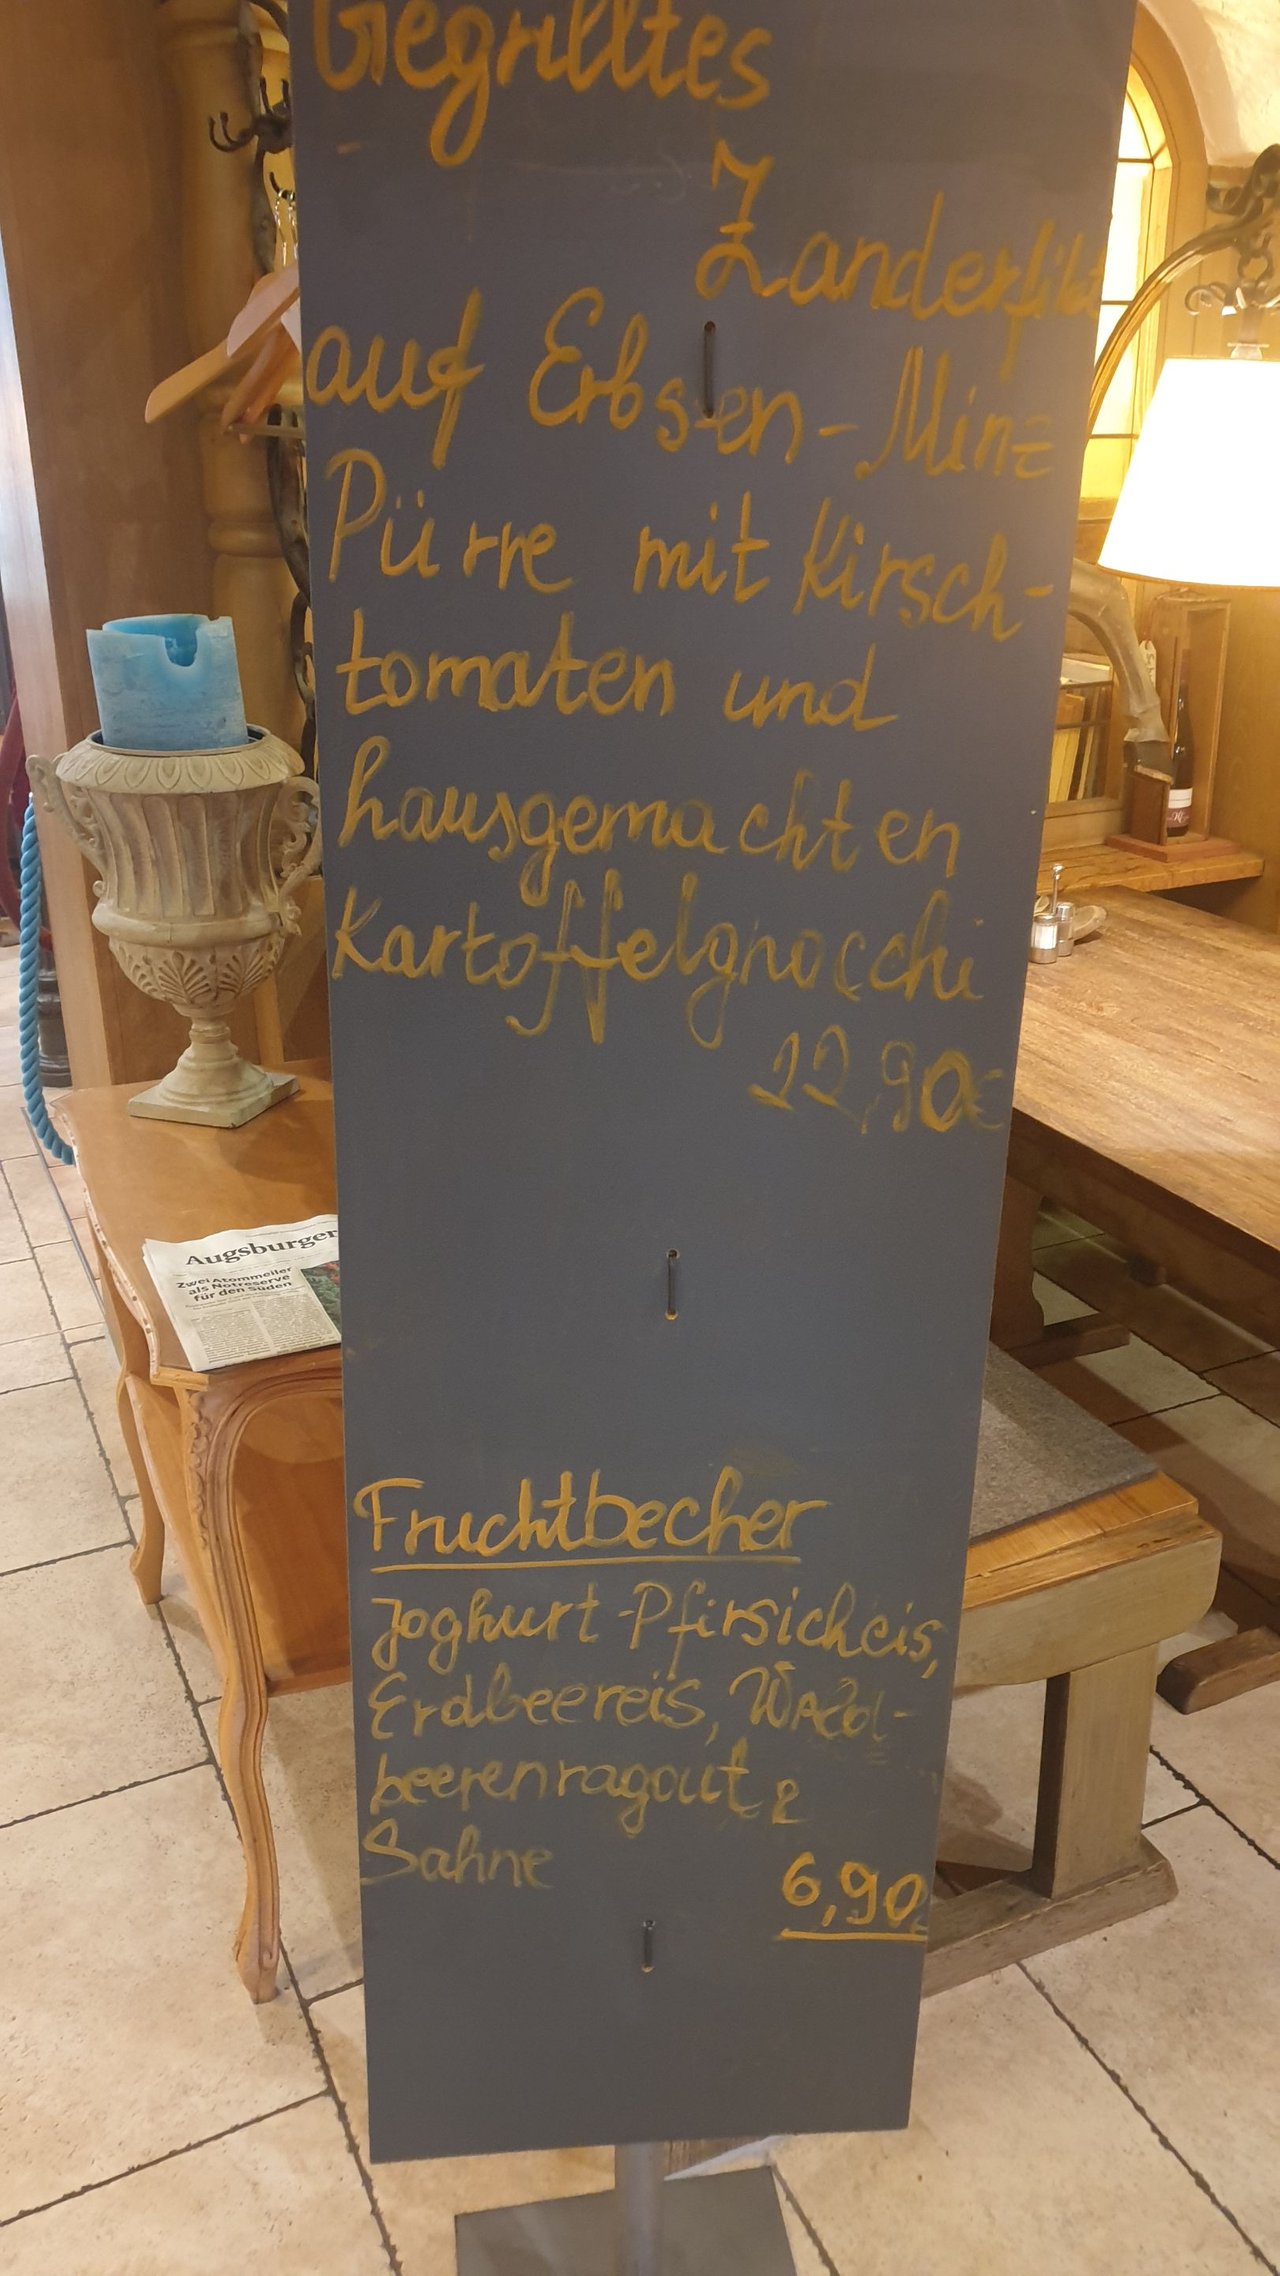 Gegrilltes
Zanderfilet
auf Erbsen-Minz
Pürre mit Kirsch-
tomaten und
hausgemachten
Kartoffelgnocchi
22,90€
Fruchtbecher
Joghurt-Pfirsicheis,
Erdbeereis, Wald-
beerenragout &
Sahne
6,90€
Augsburger
Zwei Atommeiler
als Notreserve
für den Süden